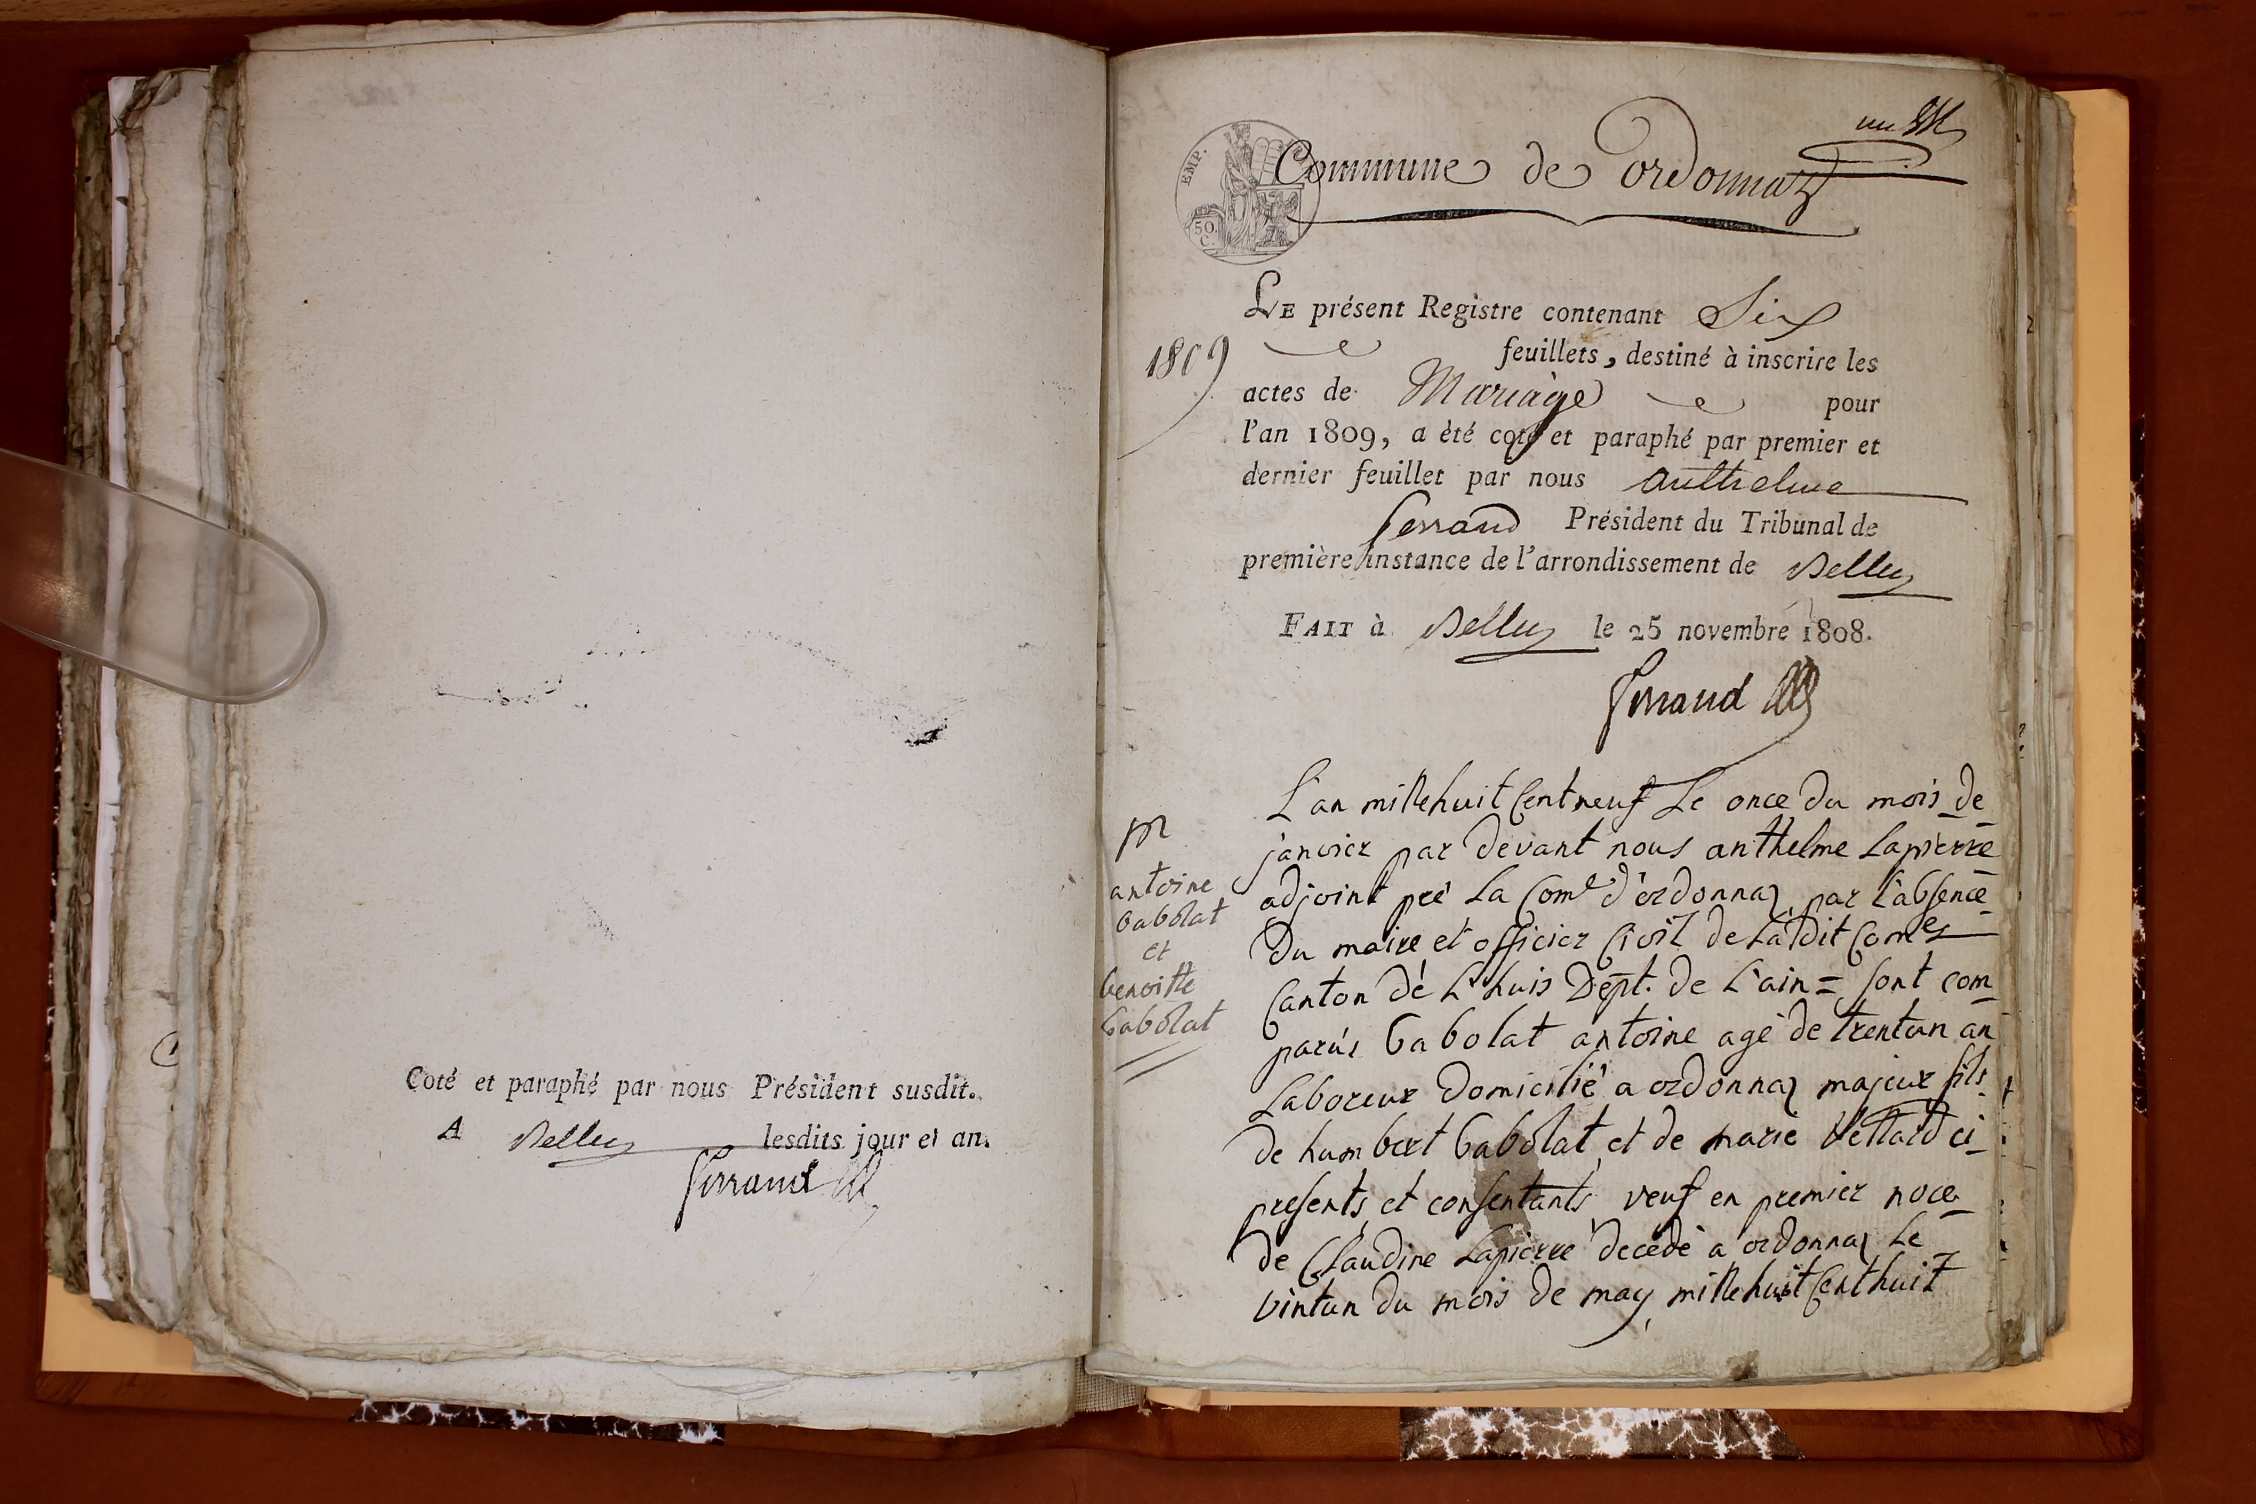 Coté et paraphé par nous Président susdit.
A Belley lesdits jour et an.
Ferrand
un
Commune de ordonnaz
EMP.
50.
C.
LE présent Registre contenant Six
feuillets, destiné à inscrire les
1809
actes de Mariage pour
l'an 1809, a été coté et paraphé par premier et
dernier feuillet par nous Anthelme
Ferrand Président du Tribunal de
première instance de l'arrondissement de Belley
FAIT à Belley le 25 novembre 1808.
Ferrand
m
antoine
babolat
et
benoitte
babolat
L'an millehuit Cent neuf Le once du mois de
janvier par devant nous anthelme Lapierre
adjoint pré La Come d'ordonnaz par L'absence
Du maire et officier Civil de Ladit Come
Canton dé L'huis Dept. de L'ain = sont com
parus babolat antoine agé de trentun an
Laboreur domicilié a ordonnaz majeur fils
de humbert babolat et de marie Vettard ci
presents et consentants veuf en premier noce
de Claudine Lapierre decedé a ordonnaz Le
vintun du mois de may millehuit Cent huit